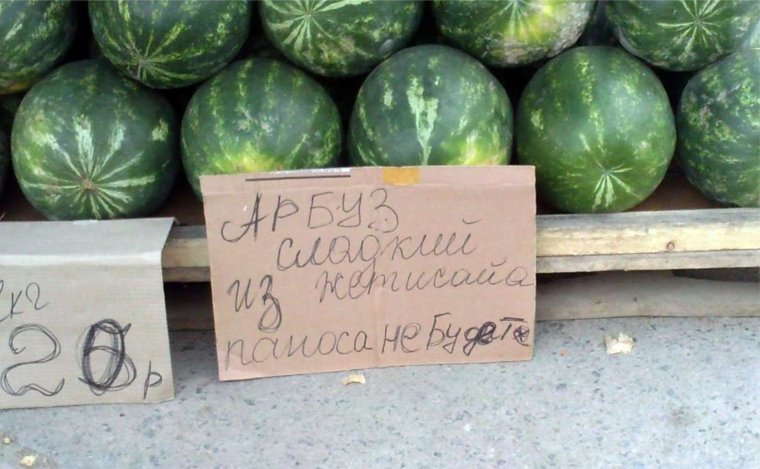 АРБУЗ
сладкий
из жетисайа
паноса не Будете
кг
20 р